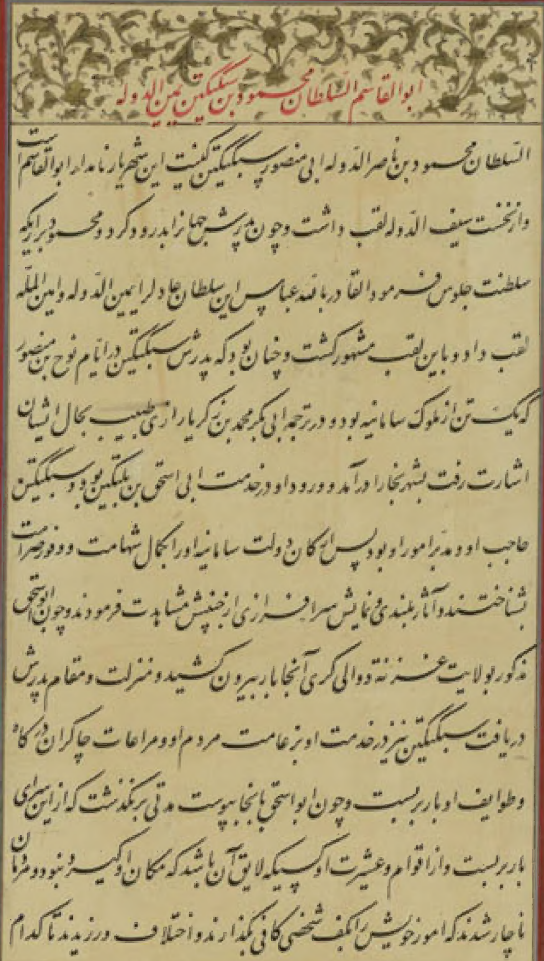 ابوالقاسم السلطان محمود بن سبکتکین یمین الدوله
السلطان محمود بن ناصر الدوله ابی منصور سبکتکین کنیت این شهریار نامدار ابوالقاسم است
و از نخست سیف الدوله لقب داشت و چون پدرش جهانرا بدرود کرد و محمود بر اریکه
سلطنت جلوس فرمود القادر بالله عباسی این سلطان عادل را یمین الدوله و امین المله
لقب داد و باین لقب مشهور کشت و چنان بود که پدرش سبکتکین در ایام نوح بن منصور
که یک تن از ملوک سامانیه بود و در ترجمه ابی بکر محمد بن زکریا رازی طبیب بحال ایشان
اشارت رفت بشهر بخارا درآمد و ورود او در خدمت ابی اسحق بن بلتکین بود و سبکتکین
حاجب او و مدبر امور او بود پس ارکان دولت سامانیه او را بکمال شهامت و وفور صرامت
بشناختند و آثار بلندی و نمایش سرافرازی از جنبش مشاهدت فرمودند و چون ابو اسحق
مذکور بولایت غزنه و والی کری آنجا بار بیرون کشید و منزلت و مقام پدرش
دریافت سبکتکین نیز در خدمت او بزعامت مردم او و مراعات چاکران درکاه
و طوایف او بار بربست و چون ابو اسحق بآنجا پیوست مدتی برنکذشت که از این سرای
بار بربست و از اقوام و عشیرت او کسیکه لایق آن باشد که مکان او کیرد نبود و مردمان
ناچار شدند که امور خویش را بکف شخصی کافی بکذارند و اختلاف ورزیدند تا کدام